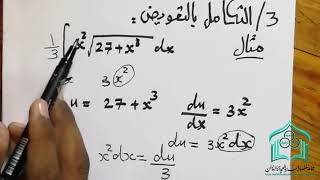 3/ التكامل بالتعويض:
مثال
1/3 ∫ x² √27+x³ dx
x 3 x²
u = 27 + x³ du/dx = 3x²
du = 3x²dx
x²dx = du/3